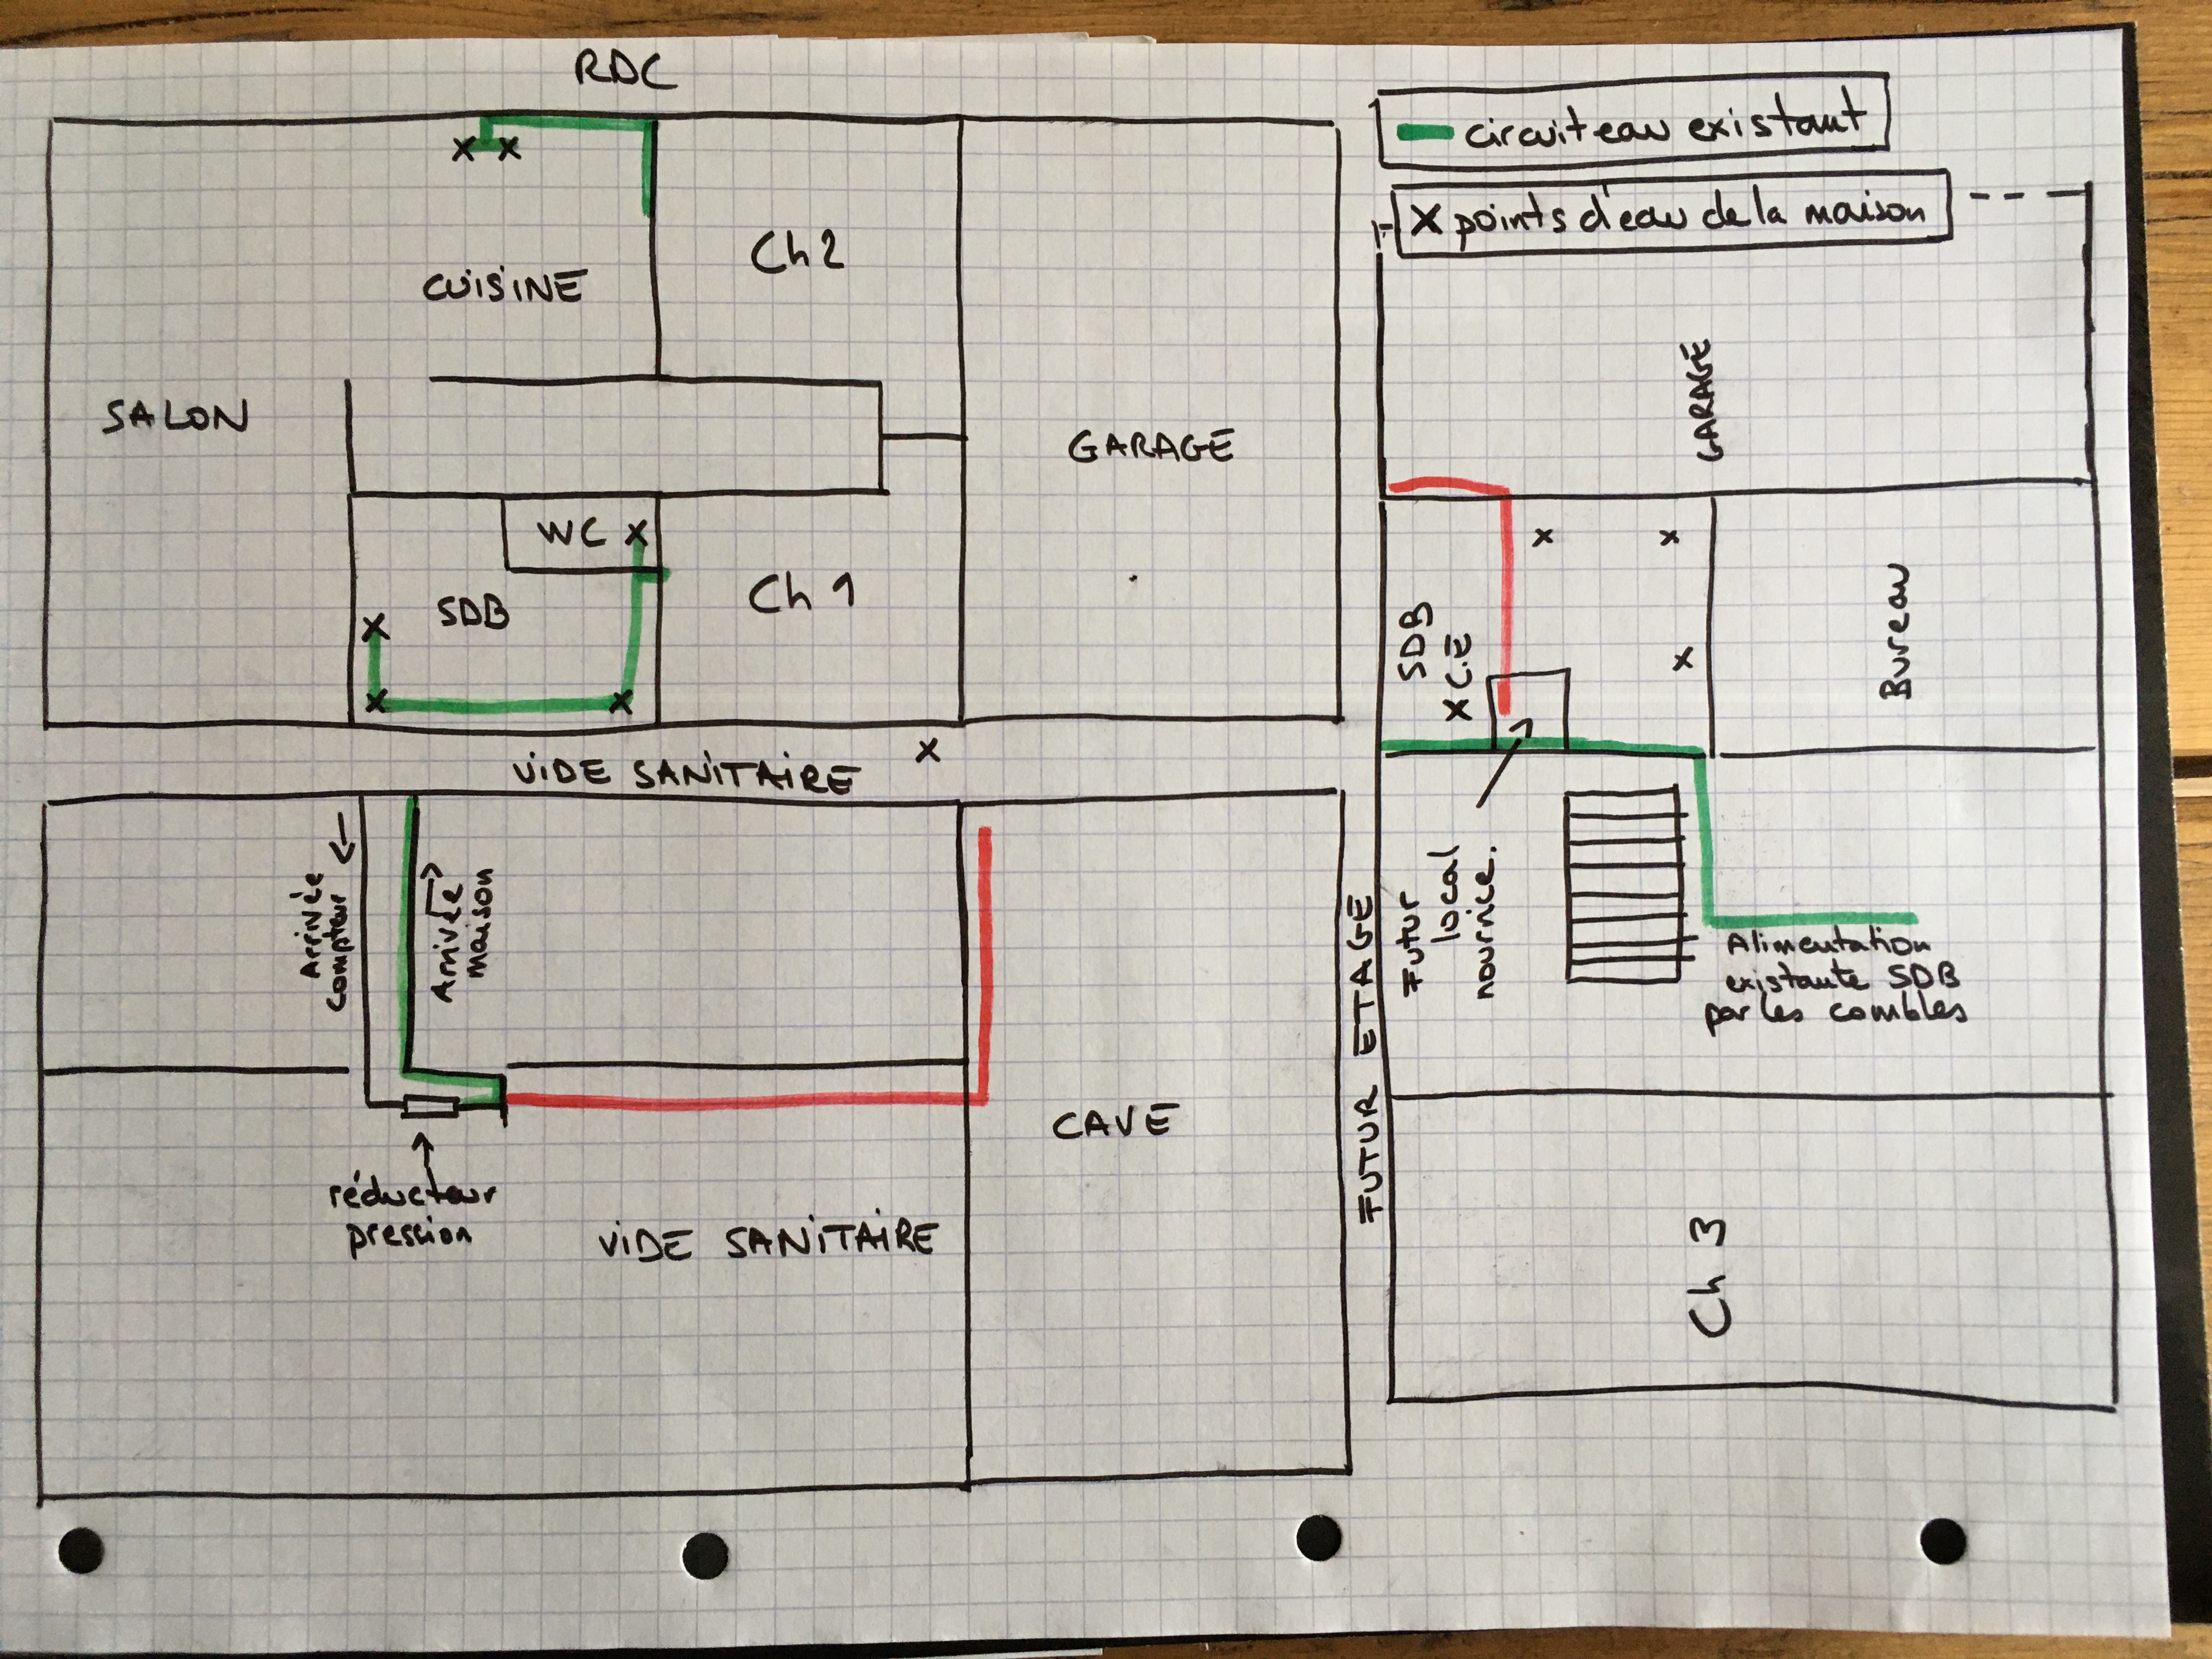 RDC
CUISINE
Ch 2
SALON
GARAGE
WC X
SDB
Ch 1
X X
X
X
X
X
VIDE SANITAIRE
Arrivée
compteur
Arrivée
maison
réducteur
pression
VIDE SANITAIRE
CAVE
circuit eau existant
X points d'eau de la maison
GARAGE
X X
X
SDB
X C.E
Bureau
Futur
local
nourrice.
Alimentation
existante SDB
par les combles
FUTUR ETAGE
Ch 3